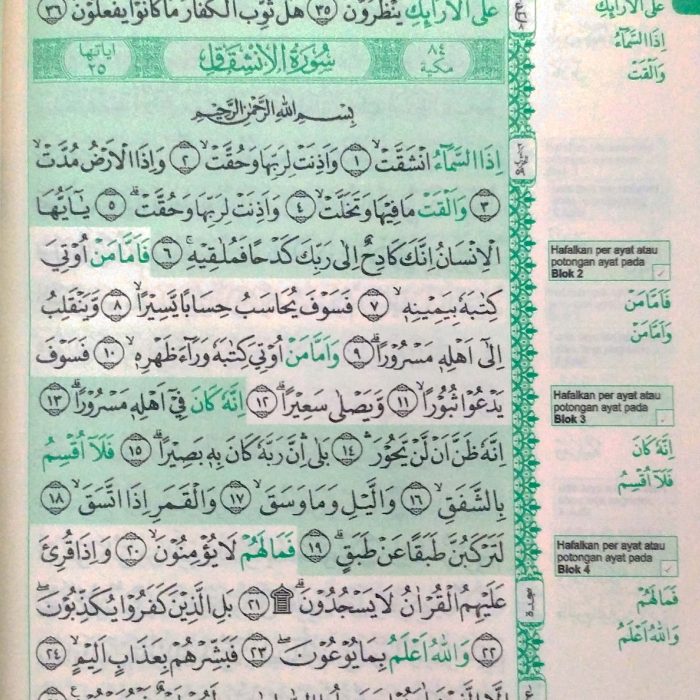 عَلَى الْاَرَاۤىِٕكِ يَنْظُرُوْنَ ٣٥ هَلْ ثُوِّبَ الْكُفَّارُ مَا كَانُوْا يَفْعَلُوْنَ ٣٦
اٰيَاتُهَا ٢٥ سُوْرَةُ الْاِنْشِقَاقِ ٨٤ مَكِّيَّة
بِسْمِ اللّٰهِ الرَّحْمٰنِ الرَّحِيْمِ
اِذَا السَّمَاۤءُ انْشَقَّتْۙ ١ وَاَذِنَتْ لِرَبِّهَا وَحُقَّتْۙ ٢ وَاِذَا الْاَرْضُ مُدَّتْۙ
٣ وَاَلْقَتْ مَا فِيْهَا وَتَخَلَّتْۙ ٤ وَاَذِنَتْ لِرَبِّهَا وَحُقَّتْۗ ٥ يٰٓاَيُّهَا
الْاِنْسَانُ اِنَّكَ كَادِحٌ اِلٰى رَبِّكَ كَدْحًا فَمُلٰقِيْهِۚ ٦ فَاَمَّا مَنْ اُوْتِيَ
كِتٰبَهٗ بِيَمِيْنِهٖۙ ٧ فَسَوْفَ يُحَاسَبُ حِسَابًا يَّسِيْرًاۙ ٨ وَّيَنْقَلِبُ
اِلٰٓى اَهْلِهٖ مَسْرُوْرًاۗ ٩ وَاَمَّا مَنْ اُوْتِيَ كِتٰبَهٗ وَرَاۤءَ ظَهْرِهٖۙ ١٠ فَسَوْفَ
يَدْعُوْا ثُبُوْرًاۙ ١١ وَّيَصْلٰى سَعِيْرًاۗ ١٢ اِنَّهٗ كَانَ فِيْٓ اَهْلِهٖ مَسْرُوْرًاۗ ١٣
اِنَّهٗ ظَنَّ اَنْ لَّنْ يَّحُوْرَۛ ١٤ بَلٰىۛ اِنَّ رَبَّهٗ كَانَ بِهٖ بَصِيْرًاۗ ١٥ فَلَآ اُقْسِمُ
بِالشَّفَقِۙ ١٦ وَالَّيْلِ وَمَا وَسَقَۙ ١٧ وَالْقَمَرِ اِذَا اتَّسَقَۙ ١٨
لَتَرْكَبُنَّ طَبَقًا عَنْ طَبَقٍۗ ١٩ فَمَا لَهُمْ لَا يُؤْمِنُوْنَۙ ٢٠ وَاِذَا قُرِئَ
عَلَيْهِمُ الْقُرْاٰنُ لَا يَسْجُدُوْنَۗ ۩ ٢١ بَلِ الَّذِيْنَ كَفَرُوْا يُكَذِّبُوْنَۖ
٢٢ وَاللّٰهُ اَعْلَمُ بِمَا يُوْعُوْنَۖ ٢٣ فَبَشِّرْهُمْ بِعَذَابٍ اَلِيْمٍۙ ٢٤
عَلَى الْاَرَاۤىِٕكِ
اِذَا السَّمَاۤءُ
وَاَلْقَتْ
Hafalkan per ayat atau
potongan ayat pada
Blok 2
فَاَمَّا مَنْ
وَاَمَّا مَنْ
Hafalkan per ayat atau
potongan ayat pada
Blok 3
اِنَّهٗ كَانَ
فَلَآ اُقْسِمُ
Hafalkan per ayat atau
potongan ayat pada
Blok 4
فَمَا لَهُمْ
وَاللّٰهُ اَعْلَمُ